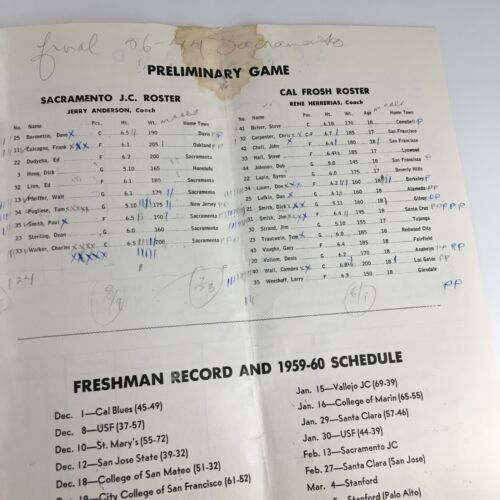 final 56-44 Sacramento
PRELIMINARY GAME
SACRAMENTO J.C. ROSTER
JERRY ANDERSON, Coach
No. Name Pos. Ht. Wt. Home Town
25 Baronette, Dave C 6.5 190 Davis
Calcagno, Frank F 6.1 205 Oakland
22 Dudycha, Ed F 6.2 200 Sacramento
3 Hong, Dick G 5.10 165 Honolulu
32 Linn, Ed F 6.1 185 Sacramento
Pfeiffer, Walt G 6.1 179 Sacramento
34 Pugliese, Tom G 5.10 175 New Jersey
35 Smith, Paul F 6.5 190 Sacramento
23 Sterling, Dean G 6.0 160 Sacramento
33 Walker, Charles 6.5 200 Sacramento
124
CAL FROSH ROSTER
RENE HERRERIAS, Coach
No. Name Pos. Ht. Wt. Age Home Town
41 Balser, Steve C 6.10 170 18 Campbell
32 Carpenter, Chris C-F 6.7 185 17 San Francisco
42 Choll, John F 6.4 180 18 San Francisco
33 Hall, Steve F 6.4½ 185 17 Lynwood
44 Johnson, Bob G 5.8 145 18 San Francisco
22 Lapin, Byron G 6.0 175 17 Beverly Hills
34 Lauer, Don G 6.2 160 18 Berkeley
25 Lufkin, Dan G 5.11 160 18 Alameda
Smith, Dick G 5.11 165 17 Gilroy
31 Smith, Jim F 6.4 195 18 Santa Cruz
30 Strand, Jim G 5.10 155 17 Tujunga
23 Trautwein, Tom G 6.0 185 17 Redwood City
43 Vaughn, Gary F 6.4 185 17 Fairfield
20 Vollom, Denis G 6.2 170 18 Anaheim
40 Wall, Camden C 6.8½ 200 18 Los Gatos
35 Weeshoff, Larry F 6.5 150 18 Glendale
FRESHMAN RECORD AND 1959-60 SCHEDULE
Dec. 1—Cal Blues (45-49)
Dec. 8—USF (37-57)
Dec. 10—St. Mary's (55-72)
Dec. 12—San Jose State (39-32)
Dec. 18—College of San Mateo (51-32)
City College of San Francisco (61-52)
Jan. 15—Vallejo JC (69-39)
Jan. 16—College of Marin (65-55)
Jan. 29—Santa Clara (57-46)
Jan. 30—USF (44-39)
Feb. 13—Sacramento JC
Feb. 27—Santa Clara (San Jose)
Mar. 4—Stanford
5—Stanford (Palo Alto)